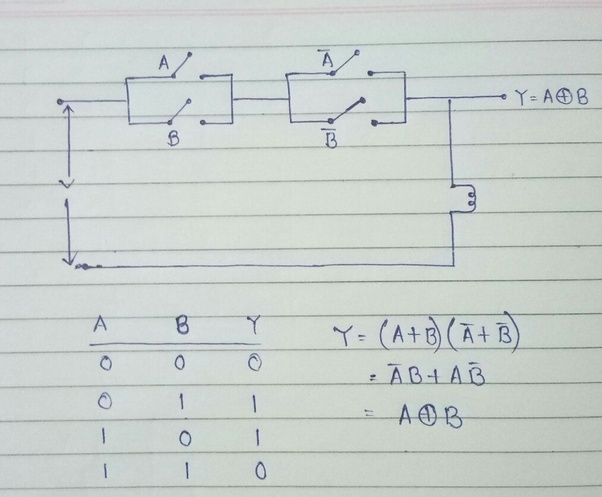 A Ā
Y = A⊕B
B B̄
A B Y
0 0 0
0 1 1
1 0 1
1 1 0
Y = (A+B)(Ā+B̄)
= ĀB + AB̄
= A⊕B